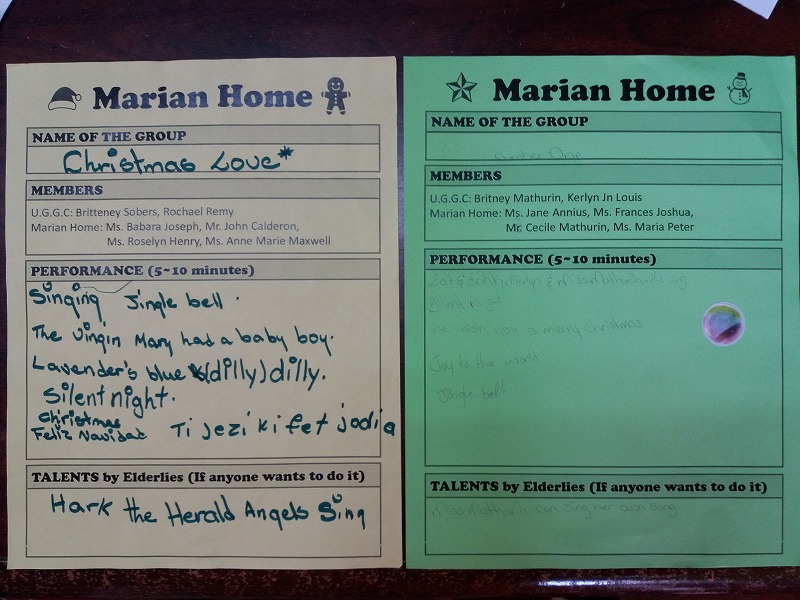 Marian Home
NAME OF THE GROUP
Christmas Love*
MEMBERS
U.G.G.C: Britteney Sobers, Rochael Remy
Marian Home: Ms. Babara Joseph, Mr. John Calderon,
Ms. Roselyn Henry, Ms. Anne Marie Maxwell
PERFORMANCE (5~10 minutes)
Singing Jingle bell.
The Virgin Mary had a baby boy.
Lavender's blue (dilly) dilly.
Silent night.
Christmas
Feliz Navidat Ti jezi ki fet jodia
TALENTS by Elderlies (If anyone wants to do it)
Hark the Herald Angels Sing
Marian Home
NAME OF THE GROUP
Number One
MEMBERS
U.G.G.C: Britney Mathurin, Kerlyn Jn Louis
Marian Home: Ms. Jane Annius, Ms. Frances Joshua,
Mr. Cecile Mathurin, Ms. Maria Peter
PERFORMANCE (5~10 minutes)
Night
We wish you a merry christmas
Joy to the world
Jingle bell
TALENTS by Elderlies (If anyone wants to do it)
Miss Mathurin can sing her own song